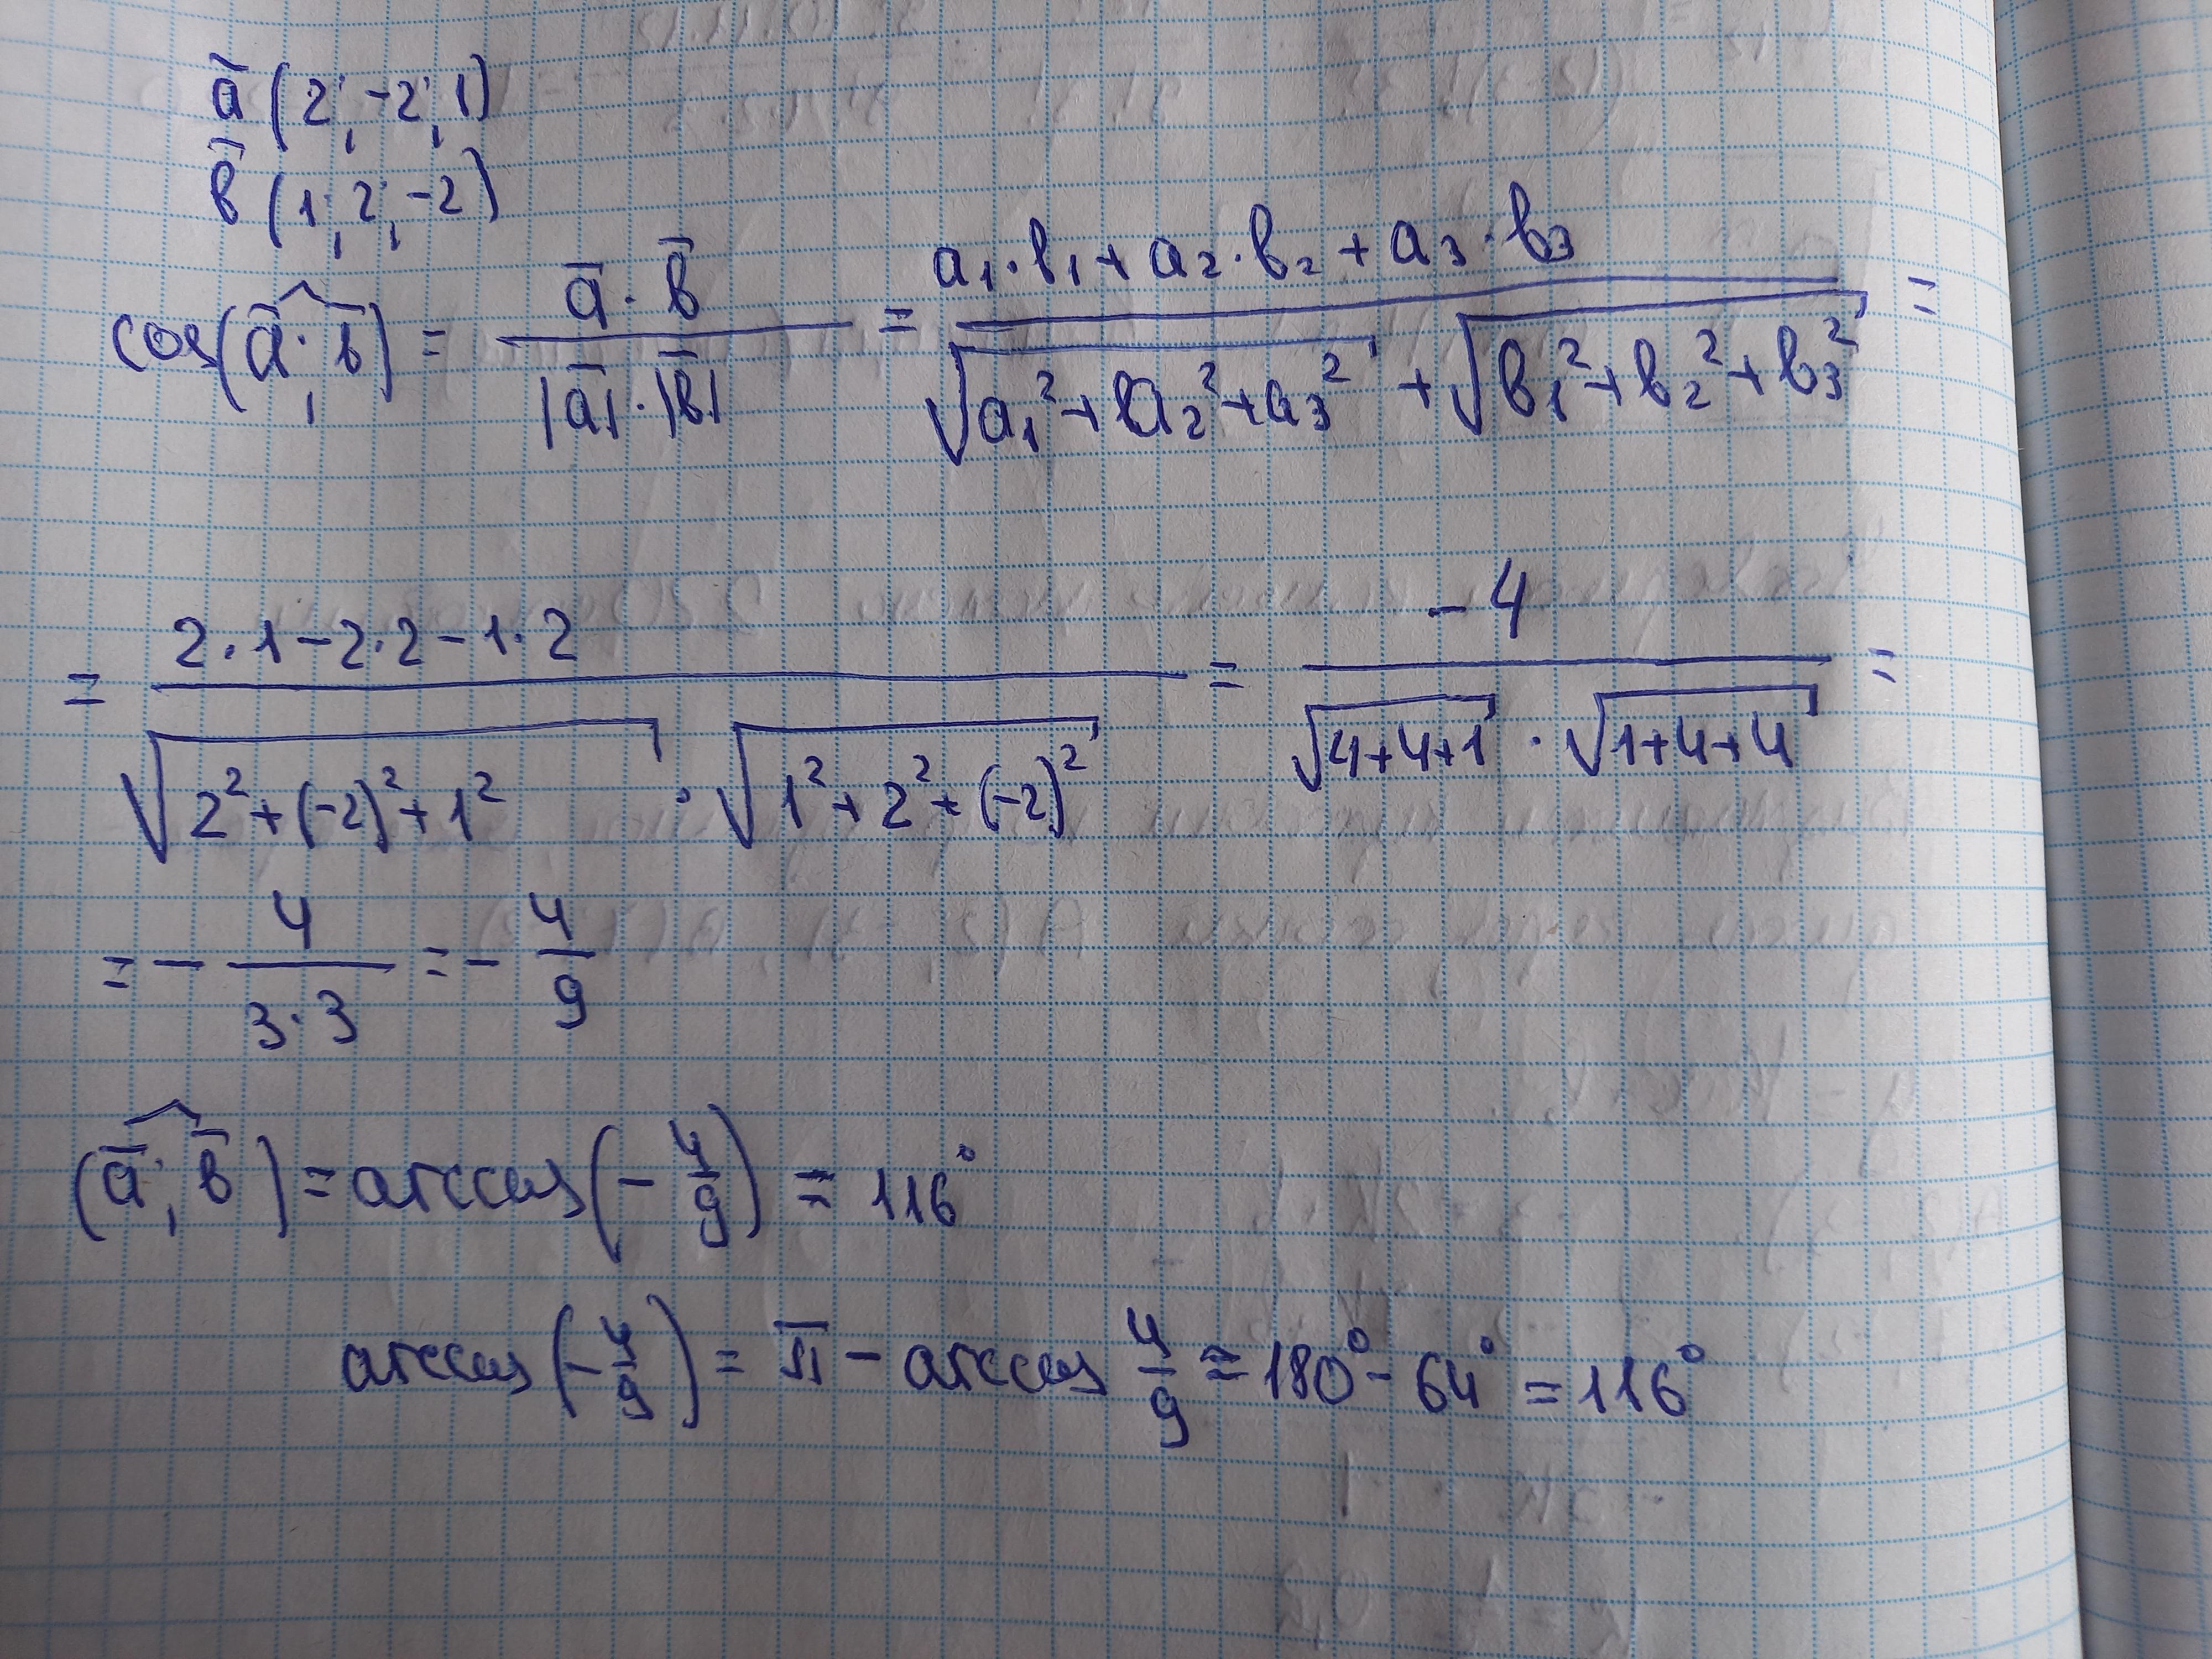 a̅ (2; -2; 1)
b̅ (1; 2; -2)
cos(a̅; b̅) = a̅ · b̅ / |a̅| · |b̅| = a₁·b₁ + a₂·b₂ + a₃·b₃ / √(a₁² + a₂² + a₃²) + √(b₁² + b₂² + b₃²) =
= 2·1 - 2·2 - 1·2 / √(2² + (-2)² + 1²) · √(1² + 2² + (-2)²) = -4 / √(4+4+1) · √(1+4+4) =
= - 4 / 3·3 = - 4/9
(a̅; b̅) = arccos(- 4/9) ≈ 116°
arccos(- 4/9) = π - arccos 4/9 ≈ 180° - 64° = 116°